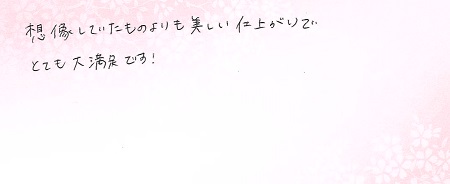 想像していたものよりも美しい仕上がりで
とても大満足です!